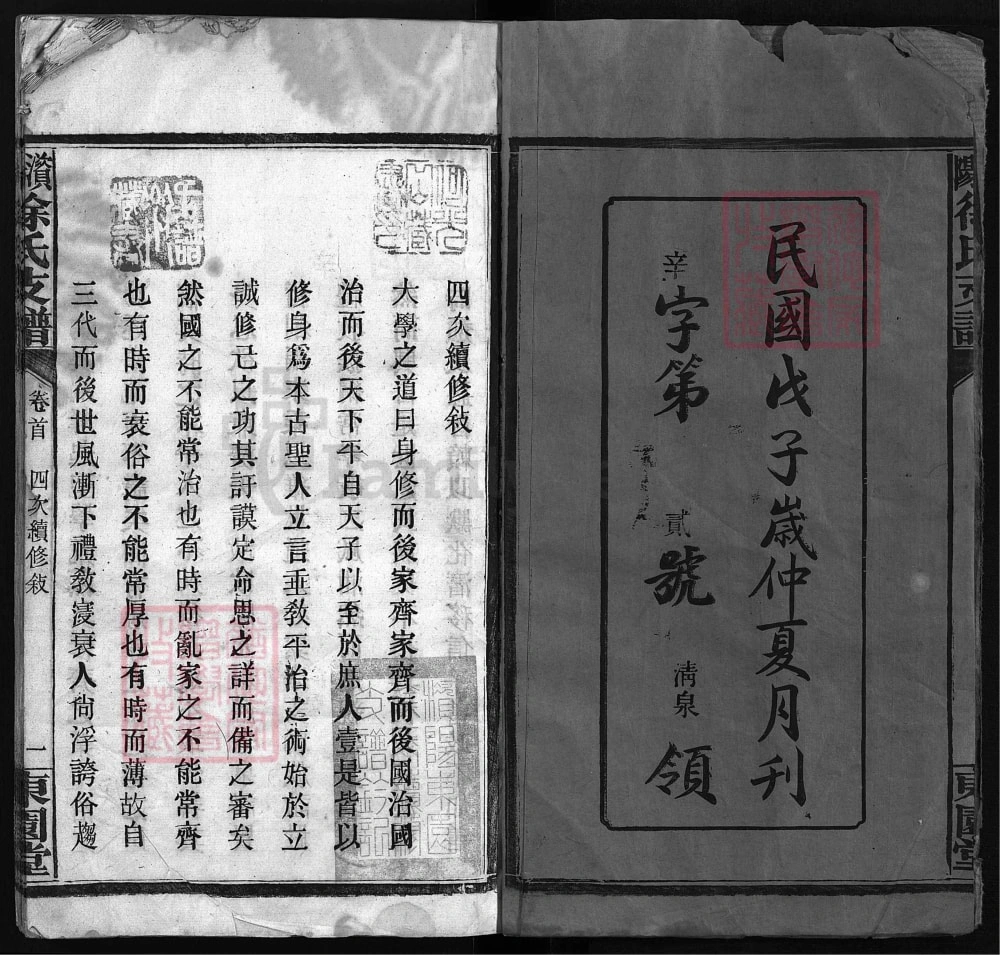 民國戊子歲仲夏月刊
辛字第貳號 清泉領
四次續修敍
大學之道曰身修而後家齊家齊而後國治國
治而後天下平自天子以至於庶人壹是皆以
修身爲本古聖人立言垂敎平治之術始於立
誠修己之功其訏謨定命思之詳而備之審矣
然國之不能常治也有時而亂家之不能常齊
也有時而衰俗之不能常厚也有時而薄故自
三代而後世風漸下禮敎寖衰人尙浮誇俗趨
濱徐氏支譜 卷首 四次續修敍 一 東園堂